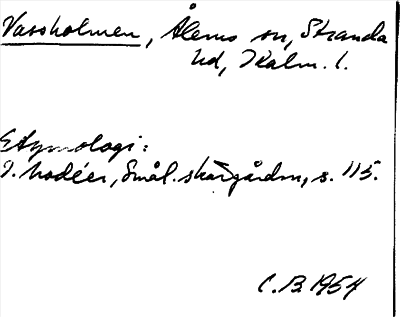 Vassholmen, Ålems sn, Stranda
hd, Kalm. l.
Etymologi:
I. Modéer, Smål. skärgårdsn, s. 115.
C.B. 1954